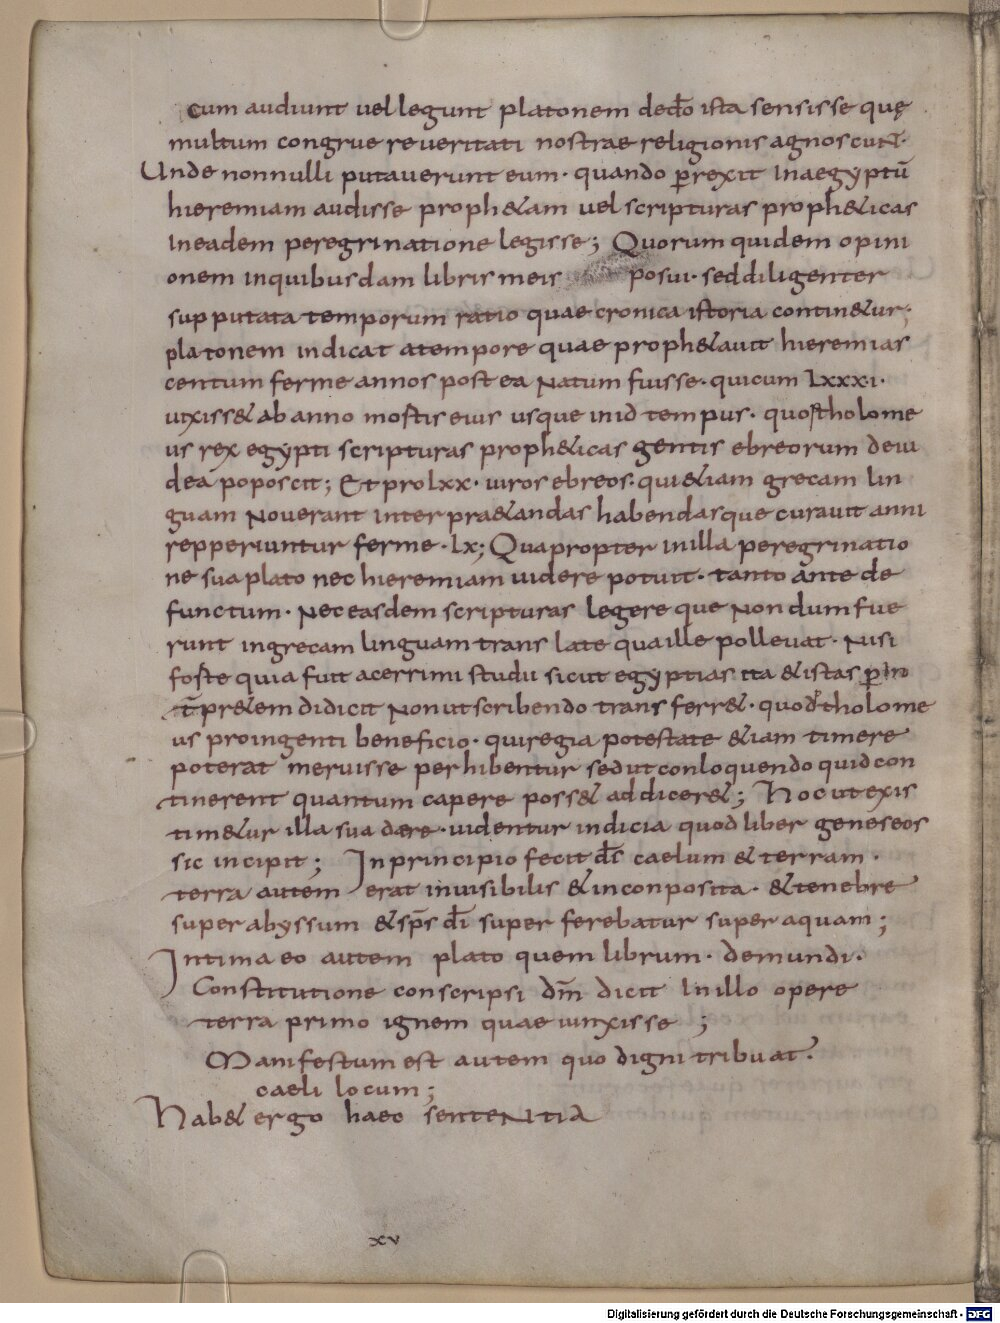 cum audiunt uel legunt platonem dedō ista sensisse quę
multum congrue reueritati nostrae religionis agnoscunt·
Unde nonnulli putauerunt eum· quando ꝑrexit inaegyptū
hieremiam audisse proph&am uel scripturas proph&icas
ineadem peregrinatione legisse; Quorum quidem opini
onem inquibusdam libris meis posui· sed diligenter
supputata temporum ratio quae cronica istoria contin&ur;
platonem indicat atempore quae proph&auit hieremias
centum ferme annos postea Natum fuisse· quicum lxxxi·
uixiss& ab anno mostis eius usque inid tempus· quo
ptholome
us rex egypti scripturas proph&icas gentis ebreorum deiu
dea poposcit; Et pro lxx· uiros ebreos· qui&iam grecam lin
guam Nouerant inter pra&andas habendasque curauit anni
repperiuntur ferme· lx; Quapropter inilla peregrinatio
ne sua plato nec hieremiam uidere potuit· tanto ante de
functum· Nec easdem scripturas legere que Nondum fue
runt ingrecam linguam trans late qua ille pollebat· Nisi
foste quia fuit acerrimi studii sicut egyptias ita &istas ꝑ in
t̄pr&em didicit Non ut scribendo trans ferr&· quod ptholome
us proingenti beneficio· qui regia potestate &iam timere
poterat meruisse perhibentur sed ut conloquendo quid con
tinerent quantum capere poss& addicer&; Hoc ut exis
tim&ur illa sua dere· uidentur indicia quod liber geneseos
sic incipit; In principio fecit d̄s caelum & terram·
terra autem erat inuisibilis &inconposita· &tenebre
super abyssum &sp̄s d̄i super ferebatur super aquam;
Intimaeo autem plato quem librum· demundi·
Constitutione conscripsi dm̄ dicit Inillo opere
terra primo ignem quae iunxisse ;
Manifestum est autem quo digni tribuat·
caeli locum;
Hab& ergo haec senteNtia
xv
Digitalisierung gefördert durch die Deutsche Forschungsgemeinschaft - DFG